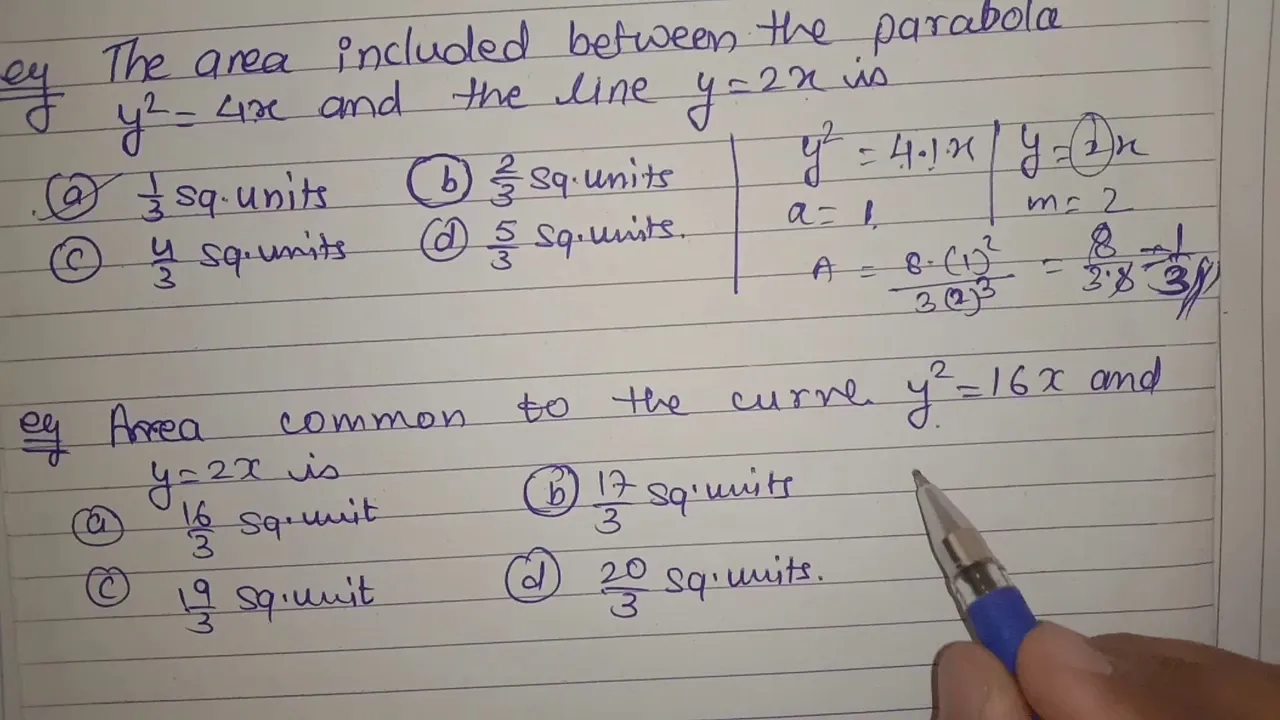 eg The area included between the parabola
y² = 4x and the line y = 2x is
(a) 1/3 sq. units (b) 2/3 sq. units
(c) 4/3 sq. units (d) 5/3 sq. units.
y² = 4·1·x | y = 2x
a = 1, m = 2
A = 8·(1)²/3(2)³ = 8/3·8 = 1/3
eg Area common to the curve y² = 16x and
y = 2x is
(a) 16/3 sq. unit (b) 17/3 sq. units
(c) 19/3 sq. unit (d) 20/3 sq. units.